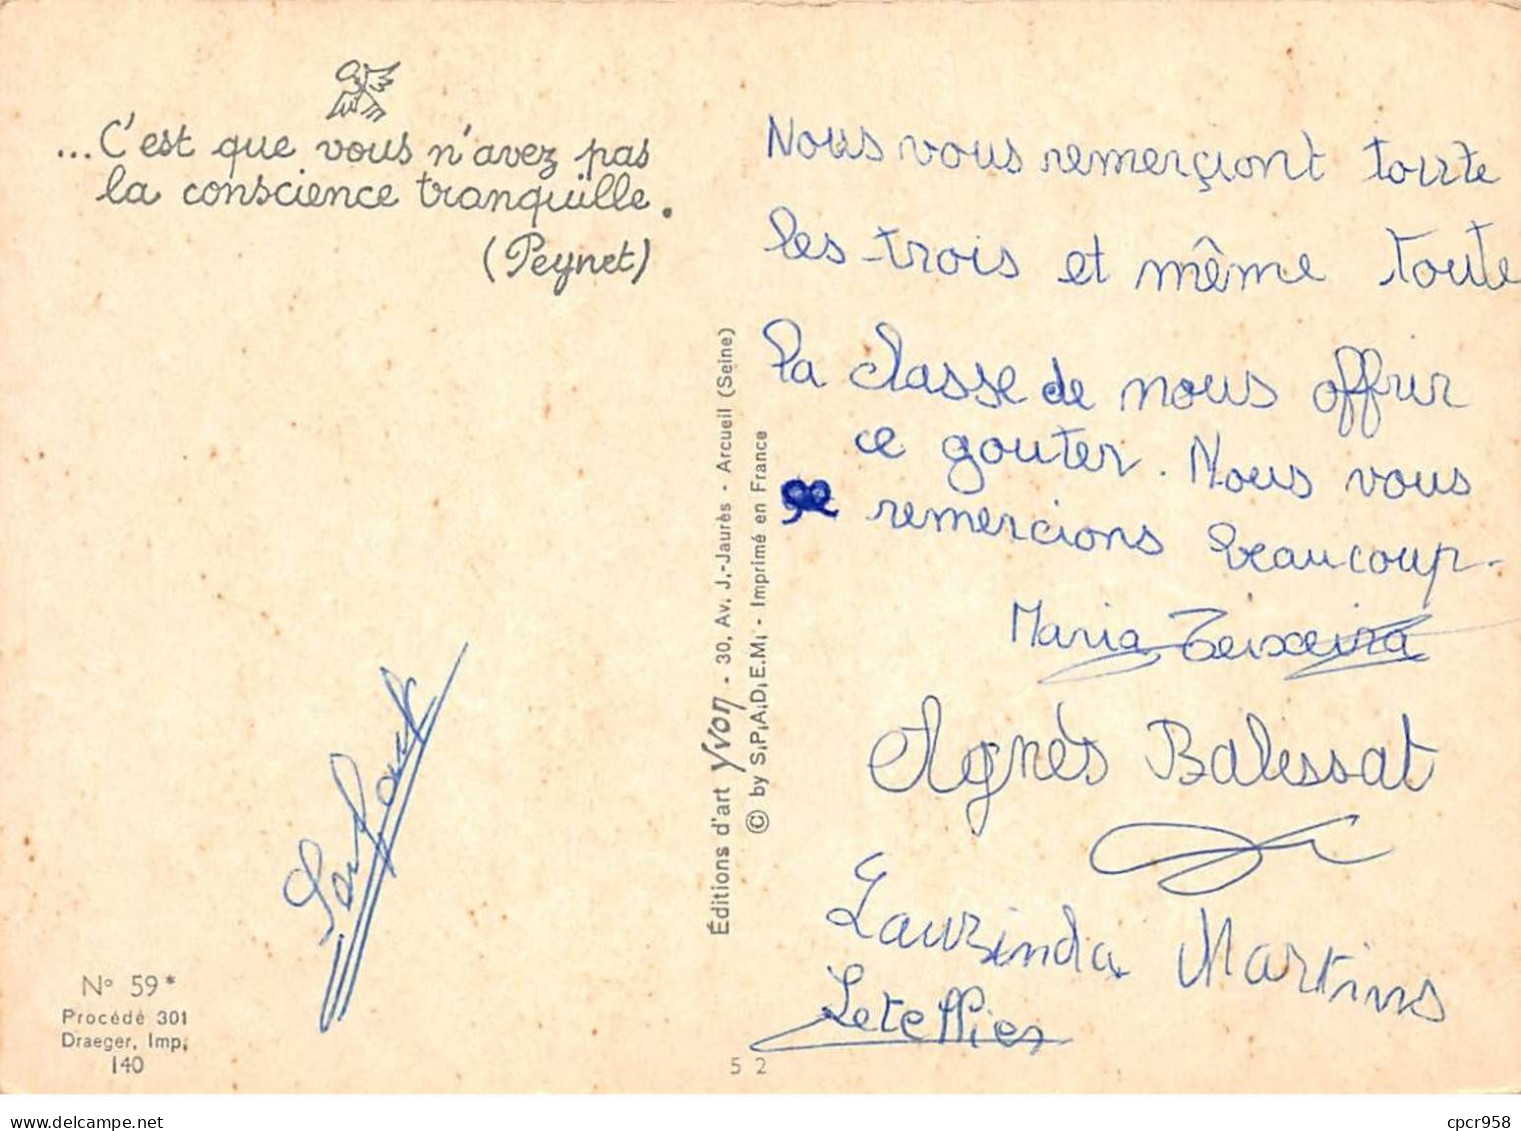 ...C'est que vous n'avez pas
la conscience tranquille.
(Peynet)
Nous vous remerçiont toute
les trois et même toute
la classe de nous offrir
ce gouter. Nous vous
remercions beaucoup.
Maria Teixeira
Agnès Balissat
Laurinda Martins
Letellier
Éditions d'art Yvon - 30, Av. J.-Jaurès - Arcueil (Seine)
© by S.P.A.D.E.M. - Imprimé en France
Nº 59*
Procédé 301
Draeger, Imp.
140
5 2
delcampe.net
cpcr958